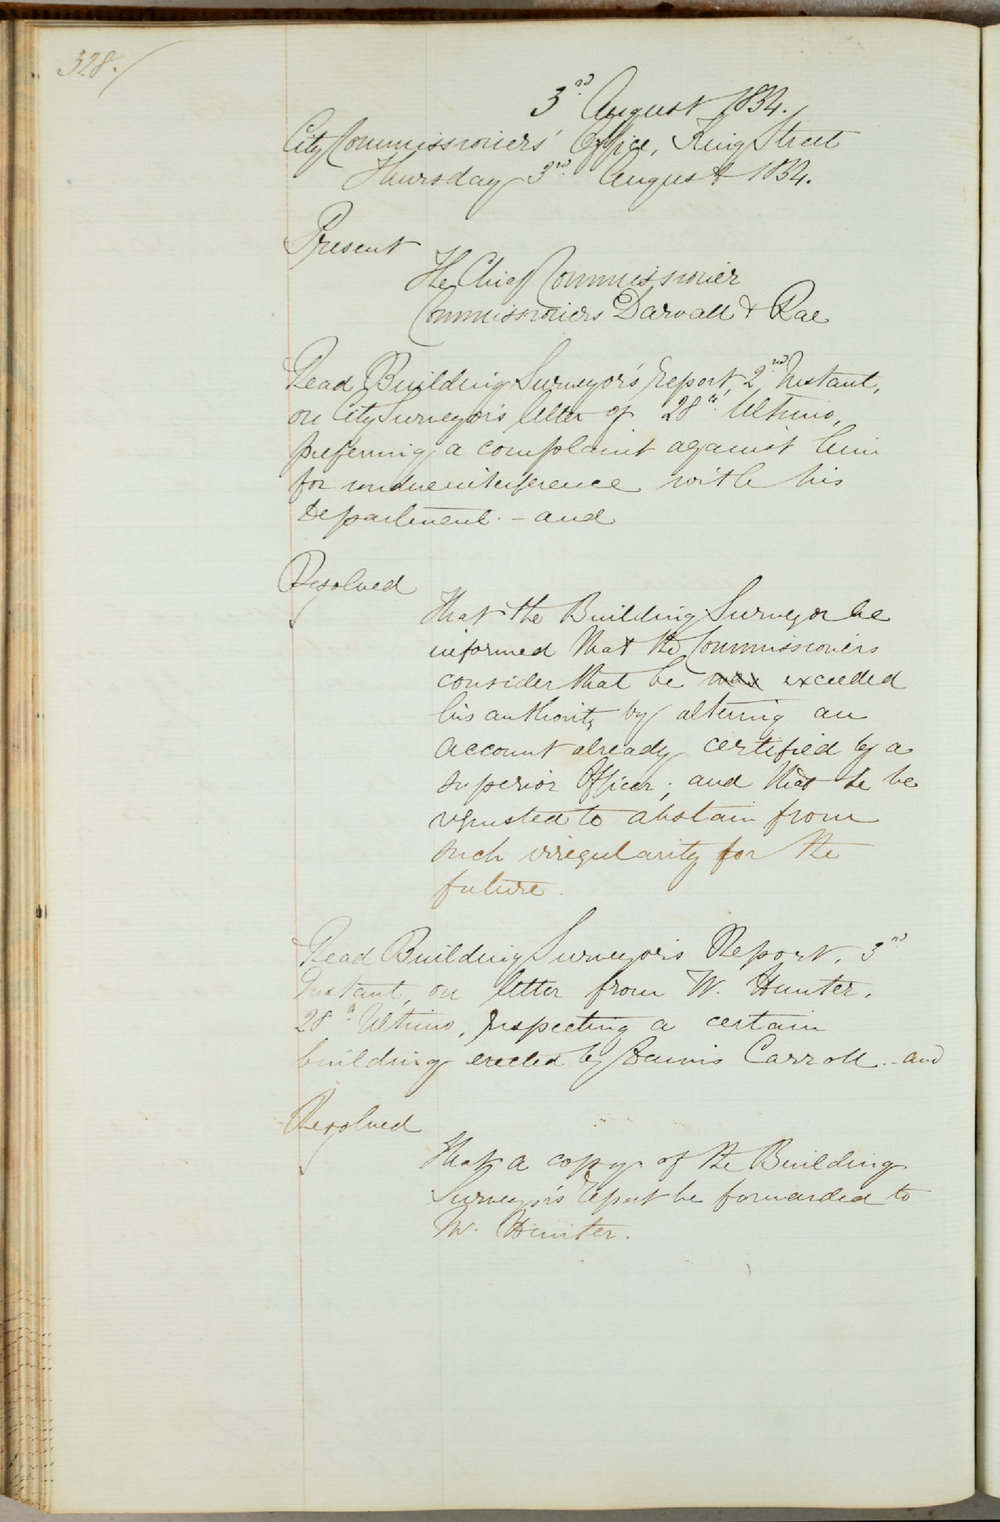 328.
3rd August 1854.
City Commissioners' Office, King Street
Thursday 3rd August 1854.
Present
The Chief Commissioner
Commissioners Darvall & Rae
Read Building Surveyor's report, 2nd Instant,
on City Surveyor's letter of 28th Ultimo,
preferring a complaint against him
for undue interference with his
Department. - and
Resolved
That the Building Surveyor be
informed that the Commissioners
consider that he was exceeded
his authority by altering an
account already certified by a
superior Officer; and that he be
requested to abstain from
such irregularity for the
future.
Read Building Surveyor's Report, 3rd
Instant, on letter from W. Hunter,
28th Ultimo, respecting a certain
building erected by Dennis Carroll - and
Resolved
That a copy of the Building
Surveyor's Report be forwarded to
W. Hunter.